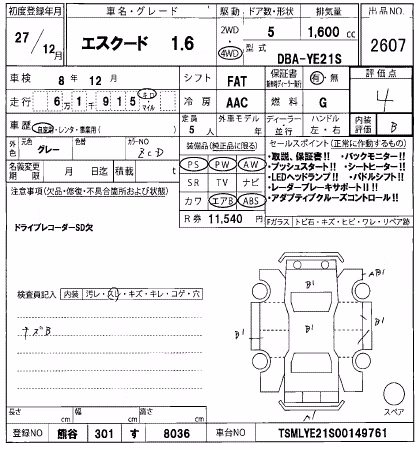 初度登録年月 車名・グレード 駆動 ドア数・形状 排気量 出品NO.
27/12月 エスクード 1.6 2WD 4WD 5 1,600cc 2607
型式 DBA-YE21S
車検 8年12月 シフト FAT 保証書(新車時ディーラー発行) 有・無 評価点
走行 6万1千915 キロ・マイル 冷房 AAC 燃料 G 4
車歴 自家用・レンタ・事業用( ) 定員 5人 外車モデル年 年 ディーラー・並行 ハンドル 左・右 内装評価 B
外色 元色 グレー 色替 カラーNO ZCD
名義変更期限 月 日 積載 t
装備品(純正品に限る) セールスポイント(正常に作動するもの)
PS PW AW
SR TV ナビ
カワ エアB ABS
R券 11,540円
・取説、保証書!! ・バックモニター!!
・プッシュスタート!! ・シートヒーター!!
・LEDヘッドランプ!! ・パドルシフト!!
・レーダーブレーキサポートⅡ!!
・アダプティブクルーズコントロール!!
注意事項(欠品・修復・不具合箇所および状態)
ドライブレコーダーSD欠
Fガラス トビ石・キズ・ヒビ・ワレ・リペア跡
検査員記入 内装 汚レ・スレ・キズ・キレ・コゲ・穴
キズB
AB1
B1
A1
B1
B1
B1
B1
A1
長さ cm 幅 cm 高さ cm
登録NO 熊谷 301 す 8036 車台NO TSMLYE21S00149761